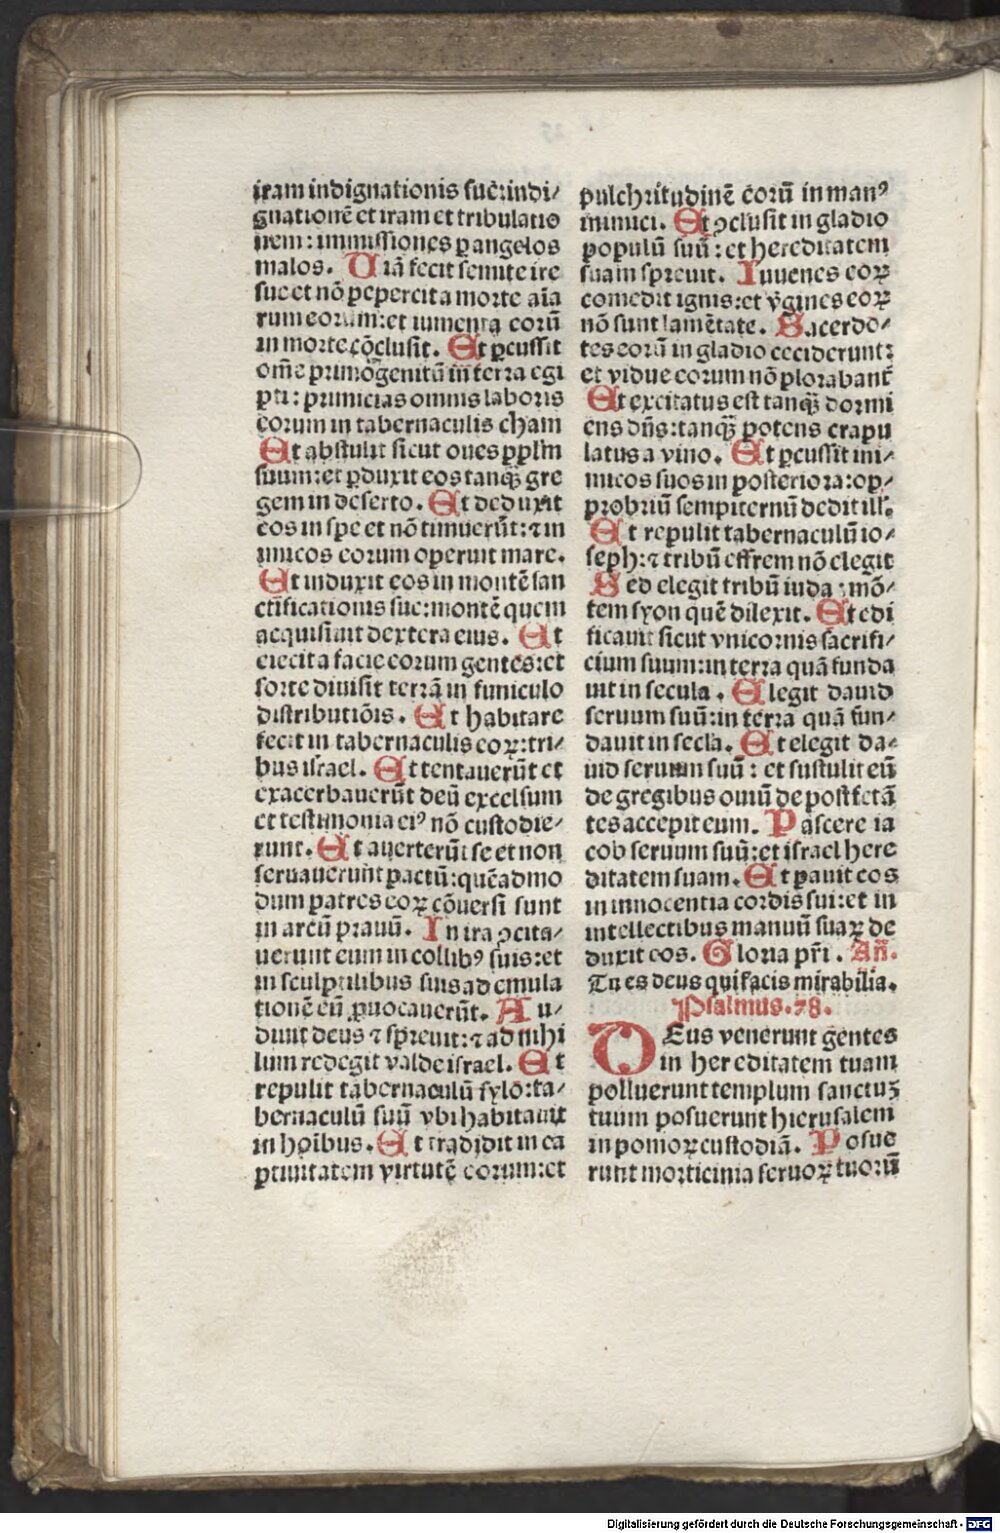 iram indignationis sue:indi/
gnationē et iram et tribulatio
nem: immissiones ꝑ angelos
malos. Viā fecit semite ire
sue et nō pepercit a morte aīa
rum eorum:et iumenta eorū
in morte cōclusit. Et ꝑcussit
om̄e primogenitū in terra egi
pti: primicias omnis laboris
eorum in tabernaculis cham
Et abstulit sicut oues pplm̄
suum:et ꝑduxit eos tanqꝫ gre
gem in deserto. Et deduxit
eos in spe et nō timuerūt:⁊ in
imicos eorum operuit mare.
Et induxit eos in montē san
ctificationis sue:montē quem
acquisiuit dextera eius. Et
eiecit a facie eorum gentes:et
sorte diuisit terrā in funiculo
distributiōis. Et habitare
fecit in tabernaculis eoꝝ:tri/
bus israel. Et tentauerūt et
exacerbauerūt deū excelsum
et testimonia eiꝰ nō custodie/
runt. Et auerterūt se et non
seruauerunt pactū:quēadmo
dum patres eoꝝ cōuersi sunt
in arcū prauū. In ira ꝯcita/
uerunt eum in collibꝰ suis:et
in sculptilibus suis ad emula
tionē eū ꝓuocauerūt. Au/
diuit deus ⁊ spreuit:⁊ ad nihi
lum redegit valde israel. Et
repulit tabernaculū sylo:ta/
bernaculū suū vbi habitauit
in hoībus. Et tradidit in ca
ptiuitatem virtutē eorum:et
pulchritudinē eorū in manꝰ
inimici. Et ꝯclusit in gladio
populū suū: et hereditatem
suam spreuit. Iuuenes eoꝝ
comedit ignis:et v̄gines eoꝝ
nō sunt lamētate. Sacerdo/
tes eorū in gladio ceciderunt:
et vidue eorum nō plorabant̄
Et excitatus est tanqꝫ dormi
ens dn̄s:tanqꝫ potens crapu
latus a vino. Et ꝑcussit ini/
micos suos in posteriora:op/
probriū sempiternū dedit ill.
Et repulit tabernaculū io/
seph:⁊ tribū effrem nō elegit
Sed elegit tribū iuda:mō/
tem syon quē dilexit. Et edi
ficauit sicut vnicornis sacrifi/
cium suum:in terra quā funda
uit in secula. Elegit dauid
seruum suū:in terra quā fun/
dauit in secla. Et elegit da/
uid seruum suū: et sustulit eū
de gregibus ouiū de post fetā
tes accepit eum. Pascere ia
cob seruum suū:et israel here
ditatem suam. Et pauit eos
in innocentia cordis sui:et in
intellectibus manuū suaꝝ de
duxit eos. Gloria pr̄i. An̄.
Tu es deus qui facis mirabilia.
Psalmus.78.
DEus venerunt gentes
in hereditatem tuam
polluerunt templum sanctuꝫ
tuum posuerunt hierusalem
in pomoꝝ custodiā. Posue
runt morticinia seruoꝝ tuorū
Digitalisierung gefördert durch die Deutsche Forschungsgemeinschaft - DFG